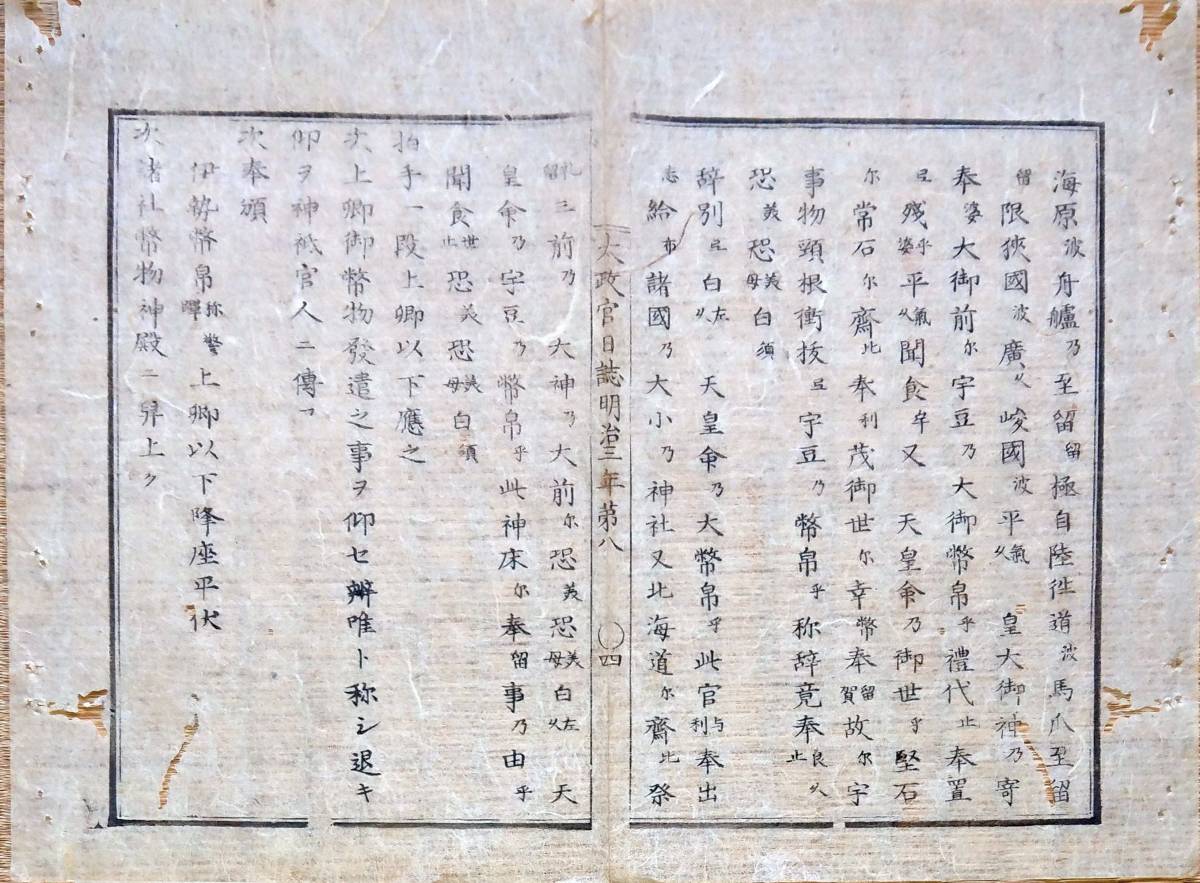 海原波舟艫乃至留留極自陸徃道波馬爪至留
留限狹國波廣久峻國波平氣久皇大御神乃寄
奉婆大御前尓宇豆乃大御幣帛乎禮代止奉置
弖殘婆乎平久氣聞食牟又天皇命乃御世乎堅石
尓常石尓齋比奉利茂御世尓幸幣奉留賀故尓宇
事物頭根衝拔弖宇豆乃幣帛乎称辞竟奉良久止
恐美恐美母白須
辞別弖白左久天皇命乃大幣帛乎此官与利奉出
志給布諸國乃大小乃神社又北海道尓齋比祭
太政官日誌明治三年第八 〇四
礼留三前乃大神乃大前尓恐美恐美母白左久天
皇命乃宇豆乃幣帛乎此神床尓奉留事乃由乎
聞食世止恐美恐美母白須
拍手一段上卿以下應之
次上卿御幣物發遣之事ヲ仰セ辨唯ト称シ退キ
仰ヲ神祇官人ニ傳フ
次奉頒
伊勢幣帛称警蹕上卿以下降座平伏
次諸社幣物神殿ニ舁上ク